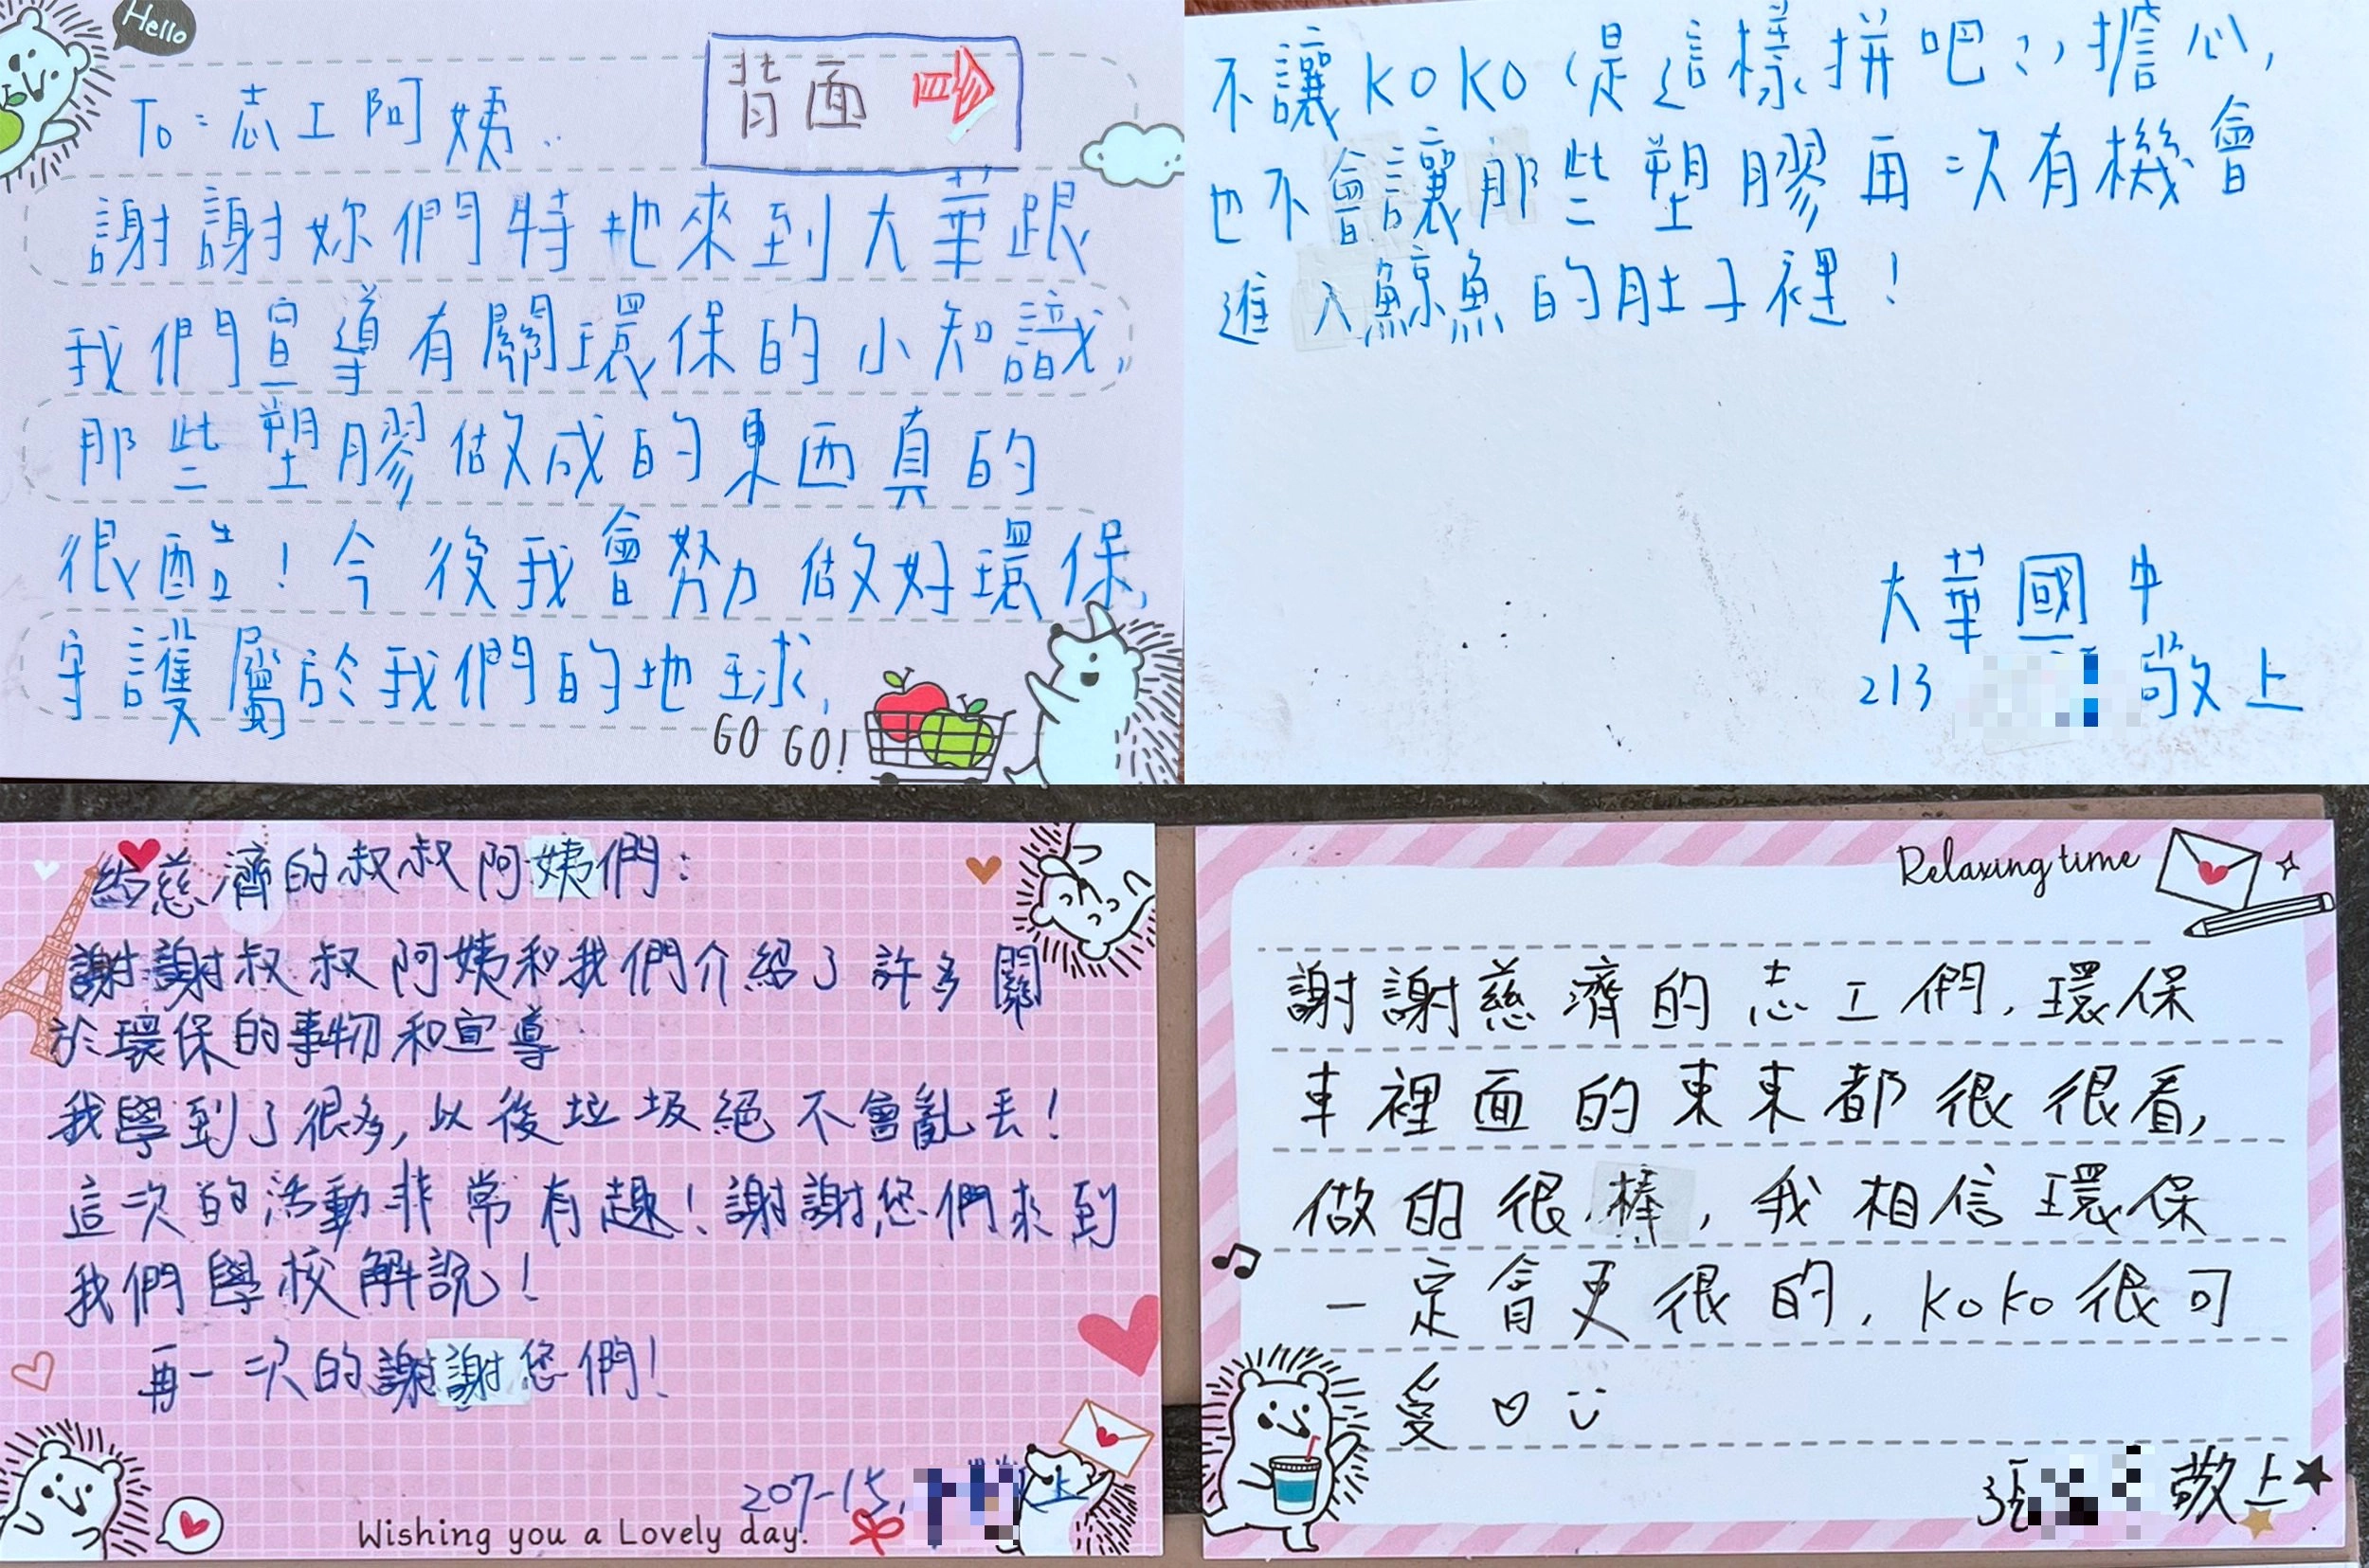 Hello
To：志工阿姨：
背面
謝謝妳們特地來到大華跟
我們宣導有關環保的小知識，
那些塑膠做成的東西真的
很酷！今後我會努力做好環保，
守護屬於我們的地球，
GO GO!
不讓KOKO（是這樣拼吧？）擔心，
也不會讓那些塑膠再次有機會
進入鯨魚的肚子裡！
大華國中
213 敬上
給慈濟的叔叔阿姨們：
謝謝叔叔阿姨和我們介紹了許多關
於環保的事物和宣導
我學到了很多，以後垃圾絕不會亂丟！
這次的活動非常有趣！謝謝您們來到
我們學校解說！
再一次的謝謝您們！
207-15,
上
Wishing you a Lovely day.
Relaxing time
謝謝慈濟的志工們，環保
車裡面的東東都很很看，
做的很棒，我相信環保
一定會更很的，KOKO很可
愛♡
張 敬上